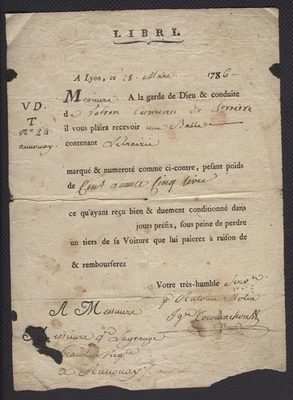 LIBRI.
A Lyon, ce 28 Mars 1786
Messieurs A la garde de Dieu & conduite
de
il vous plaira recevoir une Balle
contenant Librairie
V D.
T
N° 24
annonay
marqué & numeroté comme ci-contre, pesant poids
de Cent quarante Cinq livres
ce qu'ayant reçu bien & duement conditionné dans
jours préfix, sous peine de perdre
un tiers de sa Voiture que lui paierez à raison
de
& rembourserez
Votre très-humble
A Messieurs
Messieurs Lagrange
a Annonay